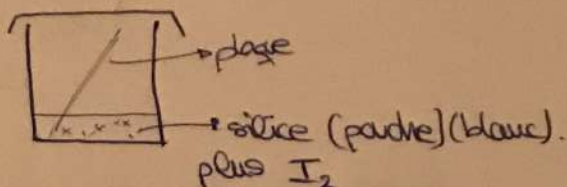 plaque
silice (poudre)(blanc).
plus I₂